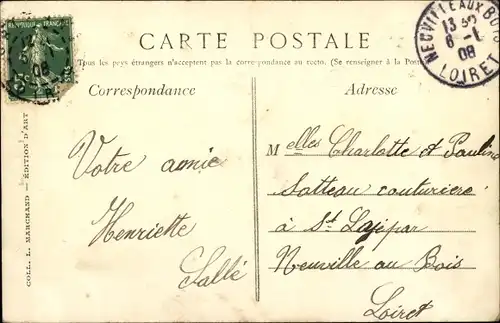 CARTE POSTALE
Tous les pays étrangers n'acceptent pas la correspondance au recto. (Se renseigner à la Poste
Correspondance
Adresse
RÉPUBLIQUE FRANÇAISE
08
NEUVILLE AUX BOIS
13 30
6 -1
08
LOIRET
COLL. L. MARCHAND — ÉDITION D'ART
Votre amie
Henriette
Sallé
Melles Charlotte et Pauline
Sotteau couturière
à St
Neuville au Bois
Loiret